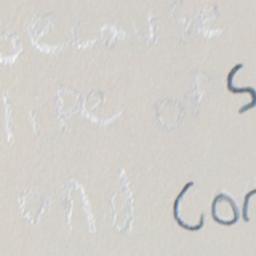 because
line of s
and cor